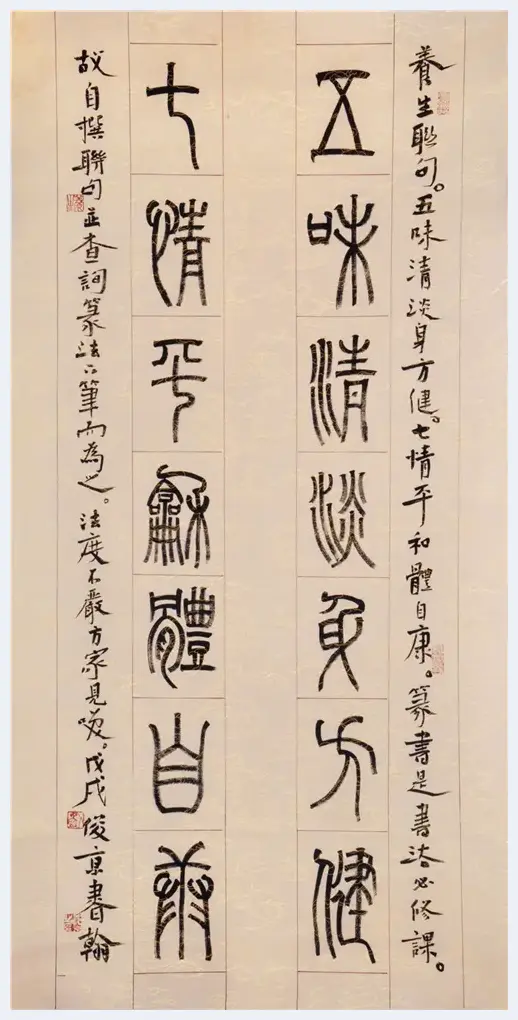 養生聯句。五味清淡身方健。七情平和體自康。篆書是書法必修課。
五味清淡身方健
七情平龢體自康
故自撰聯句並查詢篆法下筆而為之。法度不嚴方家見咲。戊戌俊京書翰